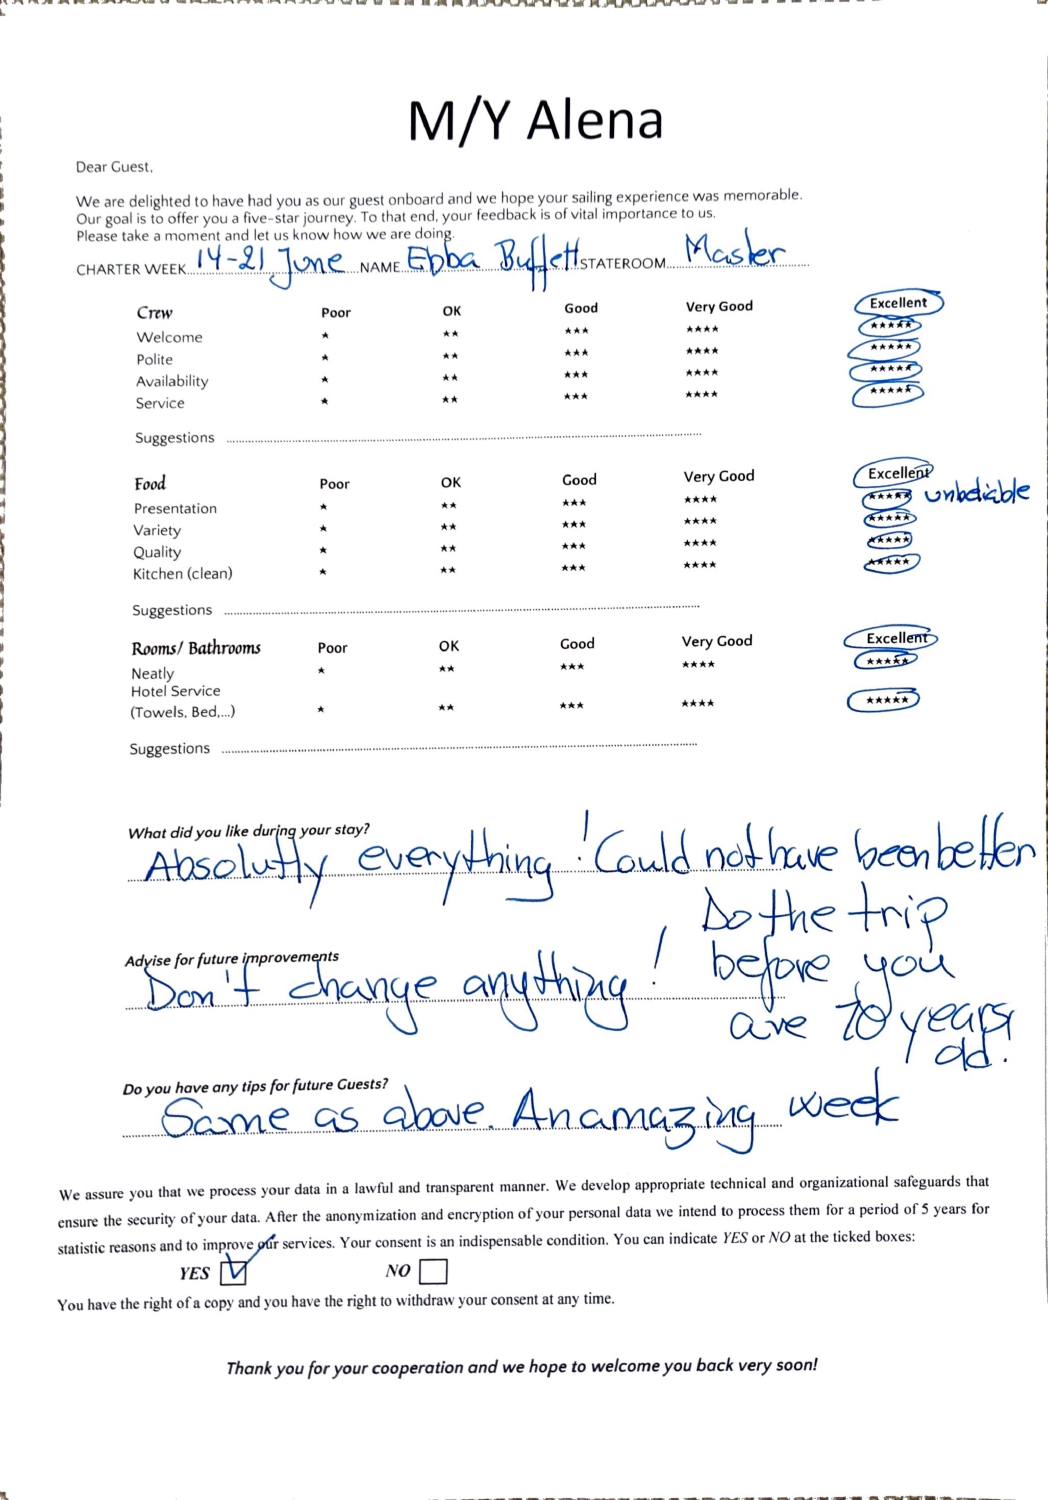 M/Y Alena
Dear Guest,
We are delighted to have had you as our guest onboard and we hope your sailing experience was memorable.
Our goal is to offer you a five-star journey. To that end, your feedback is of vital importance to us.
Please take a moment and let us know how we are doing.
CHARTER WEEK 14-21 June NAME Ebba Buffett STATEROOM Master
Crew Poor OK Good Very Good Excellent
Welcome ★ ★★ ★★★ ★★★★ ★★★★★
Polite ★ ★★ ★★★ ★★★★ ★★★★★
Availability ★ ★★ ★★★ ★★★★ ★★★★★
Service ★ ★★ ★★★ ★★★★ ★★★★★
Suggestions
Food Poor OK Good Very Good Excellent
Presentation ★ ★★ ★★★ ★★★★ ★★★★★ unbeliable
Variety ★ ★★ ★★★ ★★★★ ★★★★★
Quality ★ ★★ ★★★ ★★★★ ★★★★★
Kitchen (clean) ★ ★★ ★★★ ★★★★ ★★★★★
Suggestions
Rooms/ Bathrooms Poor OK Good Very Good Excellent
Neatly ★ ★★ ★★★ ★★★★ ★★★★★
Hotel Service
(Towels, Bed,...) ★ ★★ ★★★ ★★★★ ★★★★★
Suggestions
What did you like during your stay?
Absolutly everything! Could not have been better
Advise for future improvements
Don't change anything!
Do the trip
before you
are 70 years
old.
Do you have any tips for future Guests?
Same as above. An amazing week
We assure you that we process your data in a lawful and transparent manner. We develop appropriate technical and organizational safeguards that
ensure the security of your data. After the anonymization and encryption of your personal data we intend to process them for a period of 5 years for
statistic reasons and to improve our services. Your consent is an indispensable condition. You can indicate YES or NO at the ticked boxes:
YES ☑ NO ☐
You have the right of a copy and you have the right to withdraw your consent at any time.
Thank you for your cooperation and we hope to welcome you back very soon!